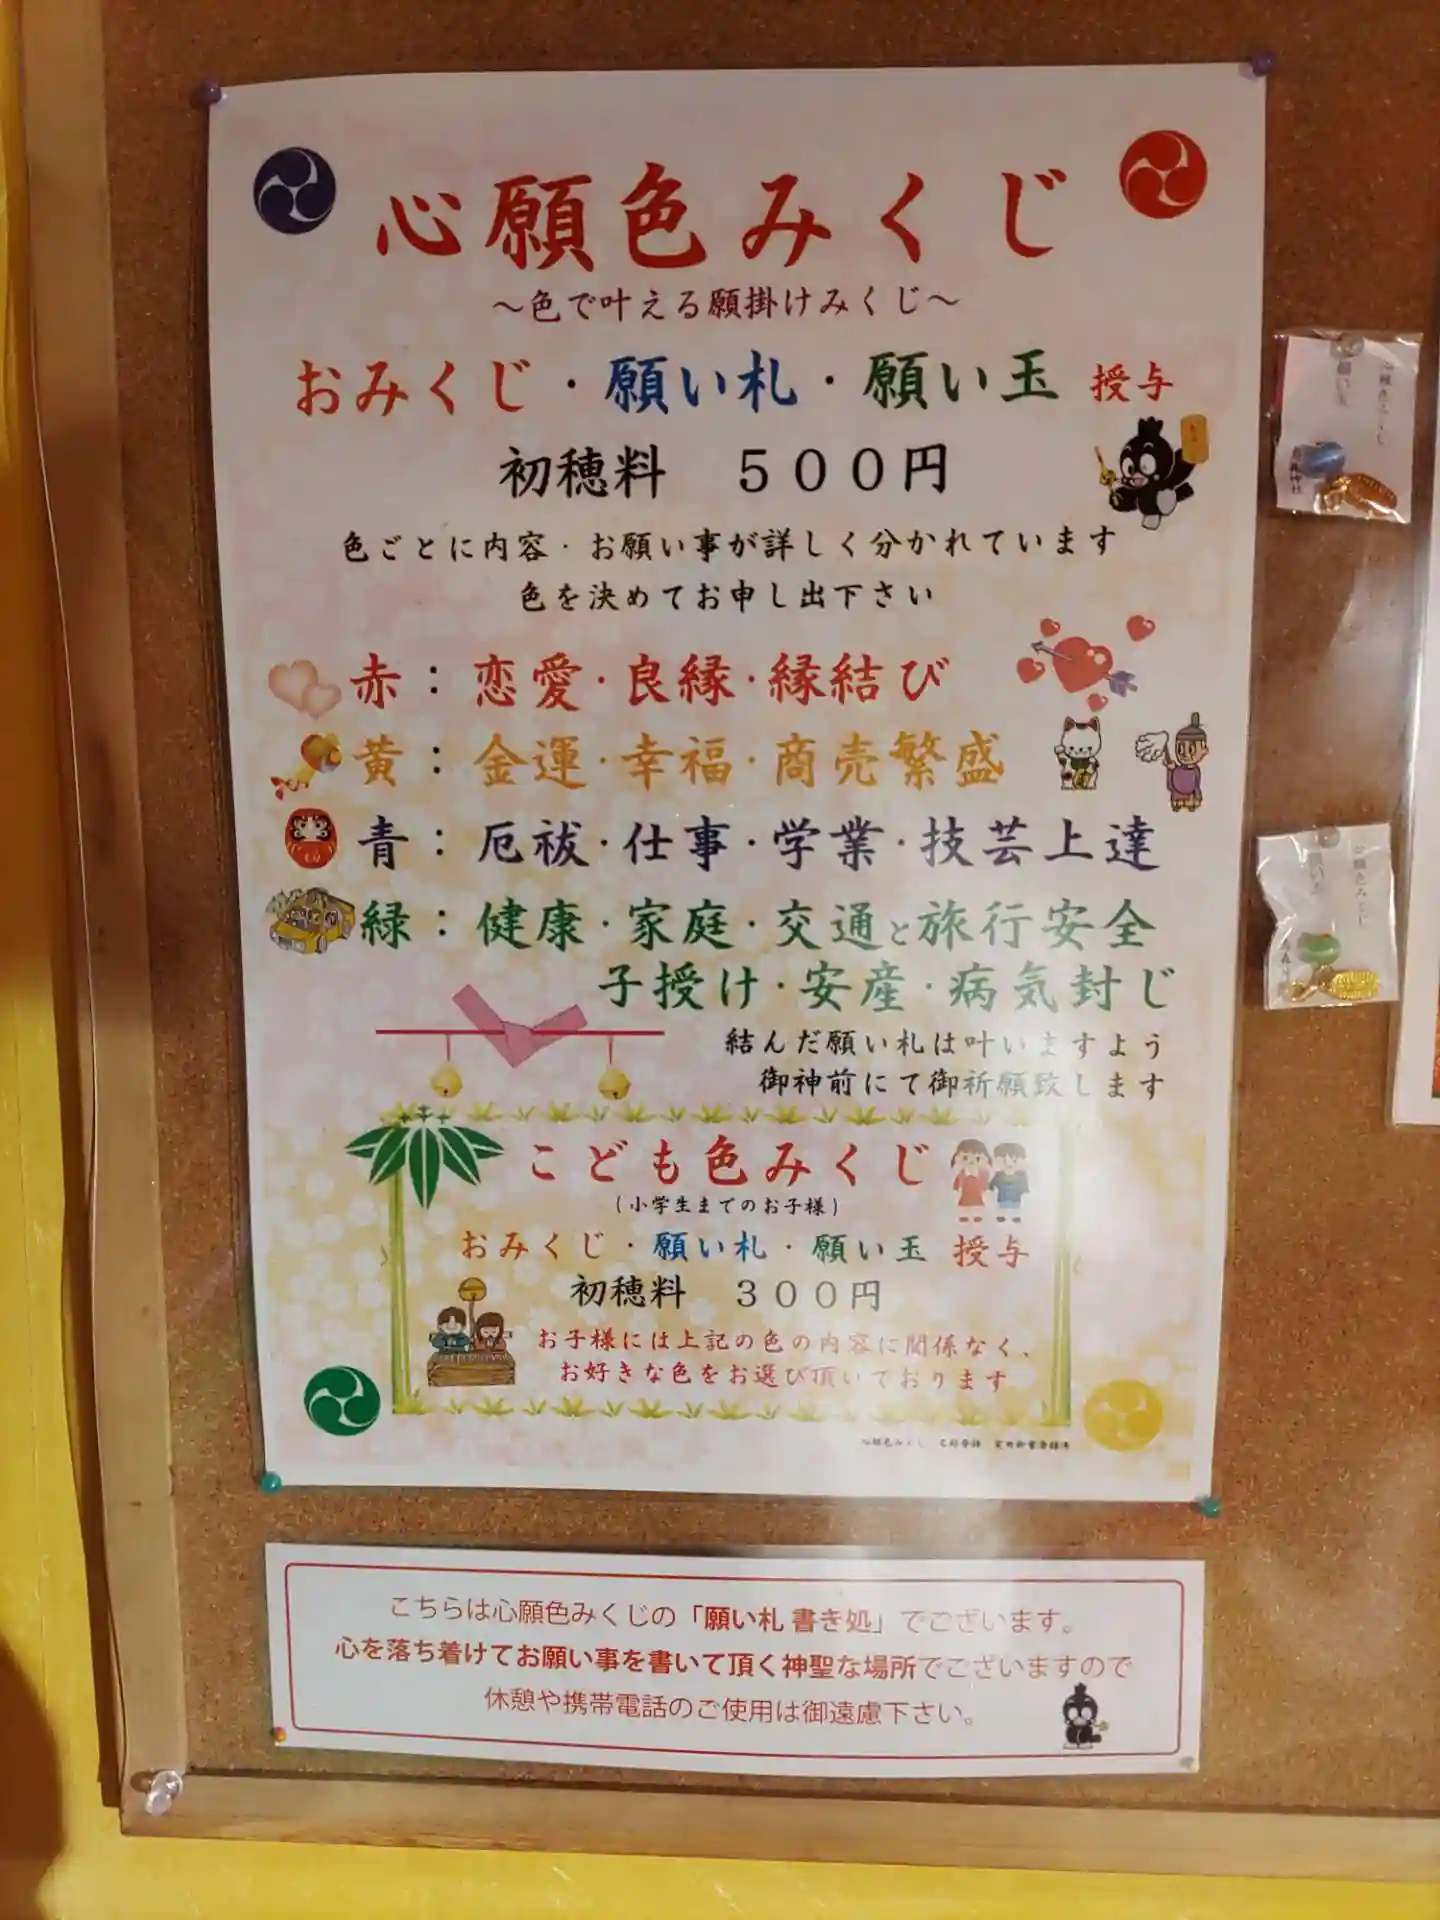 心願色みくじ
～色で叶える願掛けみくじ～
おみくじ・願い札・願い玉 授与
初穂料 500円
色ごとに内容・お願い事が詳しく分かれています
色を決めてお申し出下さい
赤：恋愛・良縁・縁結び
黄：金運・幸福・商売繁盛
青：厄祓・仕事・学業・技芸上達
緑：健康・家庭・交通と旅行安全
子授け・安産・病気封じ
結んだ願い札は叶いますよう
御神前にて御祈願致します
こども色みくじ
(小学生までのお子様)
おみくじ・願い札・願い玉 授与
初穂料 300円
お子様には上記の色の内容に関係なく、
お好きな色をお選び頂いております
心願色みくじ
こちらは心願色みくじの「願い札 書き処」でございます。
心を落ち着けてお願い事を書いて頂く神聖な場所でございますので
休憩や携帯電話のご使用は御遠慮下さい。
心願色みくじ
願い玉
心願色みくじ
願い玉